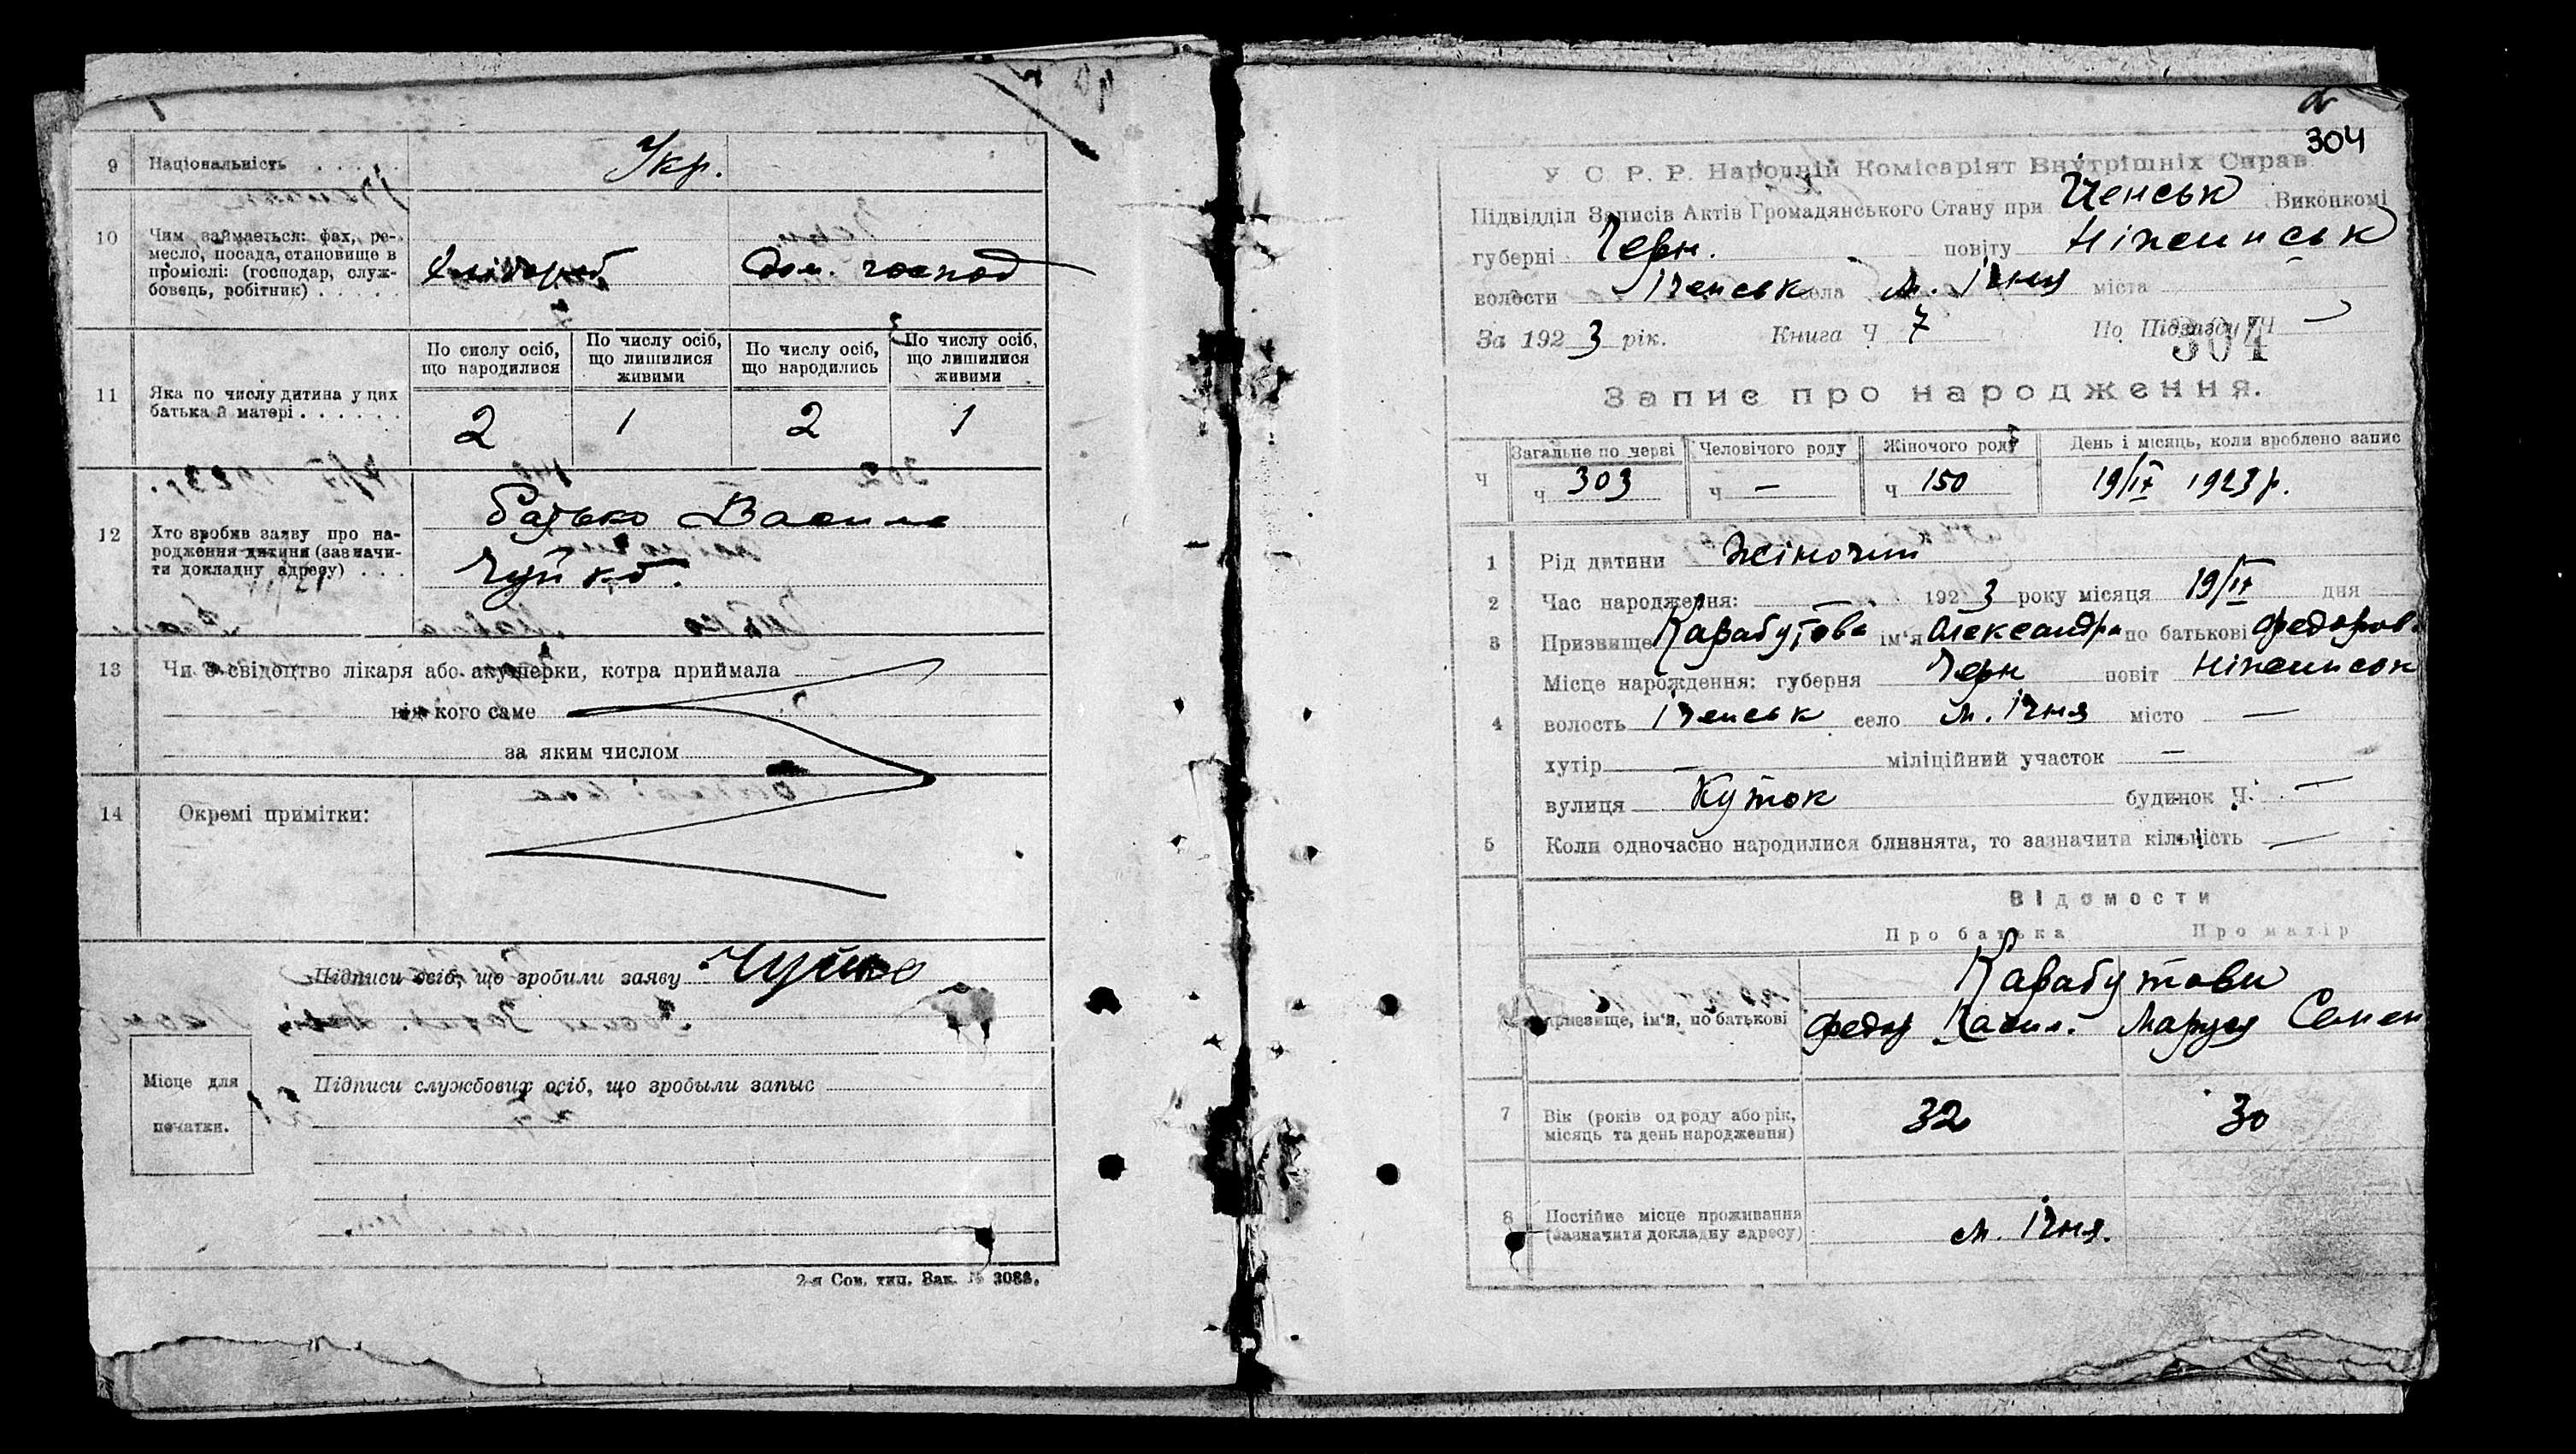 9 Національність . . . . .
Укр.
10 Чим займається: фах, ре-
месло, посада, становище в
промислі: (господар, служ-
бовець, робітник) . . . . .
Хлібороб Дом. господ
11 Яка по числу дитина у цих
батька й матері . . . . . .
По сислу осіб, що народилися
По числу осіб, що лишилися живими
По числу осіб, що народились
По числу осіб, що лишилися живими
2 1 2 1
12 Хто зробив заяву про на-
родження дитини (зазначи-
ти докладну адресу) . . .
батько Василь
Чуйко.
13 Чи є свідоцтво лікаря або акушерки, котра приймала
від кого саме
за яким числом
14 Окремі примітки:
Підписи осіб, що зробили заяву Чуйко
Місце для
печатки.
Підписи службових осіб, що зробыли запыс
2-я Сов. тип. Зак. № 3088.
304
У С. Р. Р. Народній Комісаріят Внутрішніх Справ
Підвідділ Записів Актів Громадянського Стану при Іченськ Виконкомі
губерні Черн. повіту Ніжинськ
волости Іченськ села м. Ічня міста
За 1923 рік. Книга Ч 7 По Підвідсу Ч —
304
Запис про народження.
Ч
Загальне по черві Человічого роду Жіночого роду День і місяць, коли вроблено запис
ч 303 ч — ч 150 19/IV 1923 р.
1 Рід дитини жіночий
2 Час народження: 1923 року місяця 19/IV дня
3 Призвище Карабутова ім'я Олександра по батькові Федоров.
4 Місце нарождення: губерня Черн повіт Ніжинськ
волость Іченськ село м. Ічня місто —
хутір — міліційний участок —
вулиця Куток будинок Ч. —
5 Коли одночасно народилися близнята, то зазначити кількість —
Відомости
Про батька Про матір
Призвище, ім'я, по батькові
Карабутови
Федор Васил. Маруся Семен
7 Вік (років од роду або рік,
місяць та день народження)
32 30
8 Постійне місце проживання
(зазначити докладну адресу)
м. Ічня.